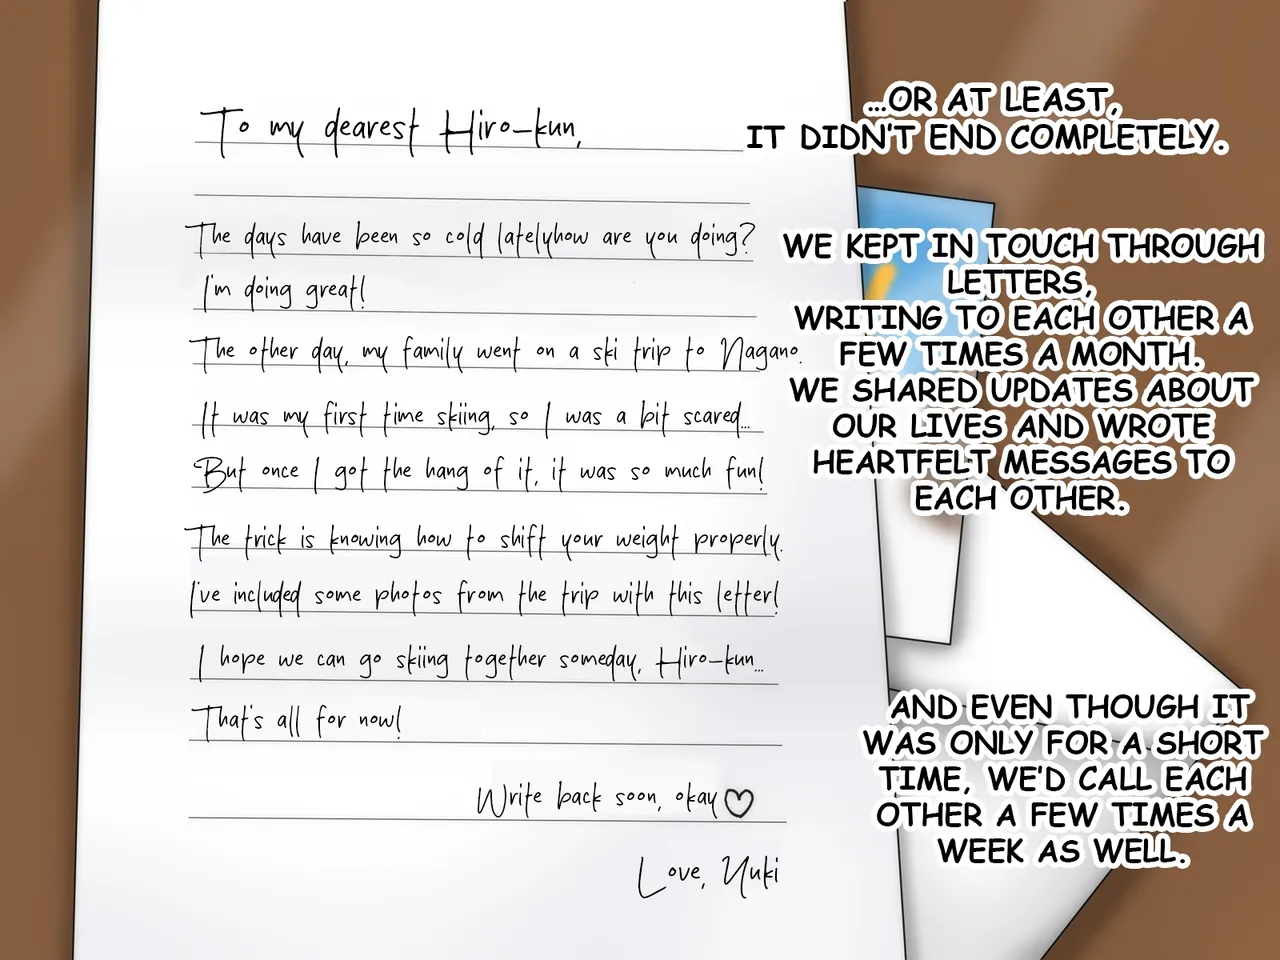 To my dearest Hiro-kun,
The days have been so cold latelyhow are you doing?
I'm doing great!
The other day, my family went on a ski trip to Nagano.
It was my first time skiing, so I was a bit scared...
But once I got the hang of it, it was so much fun!
The trick is knowing how to shift your weight properly.
I've included some photos from the trip with this letter!
I hope we can go skiing together someday, Hiro-kun...
That's all for now!
Write back soon, okay♡
Love, Yuki
...OR AT LEAST,
IT DIDN'T END COMPLETELY.
WE KEPT IN TOUCH THROUGH
LETTERS,
WRITING TO EACH OTHER A
FEW TIMES A MONTH.
WE SHARED UPDATES ABOUT
OUR LIVES AND WROTE
HEARTFELT MESSAGES TO
EACH OTHER.
AND EVEN THOUGH IT
WAS ONLY FOR A SHORT
TIME, WE'D CALL EACH
OTHER A FEW TIMES A
WEEK AS WELL.